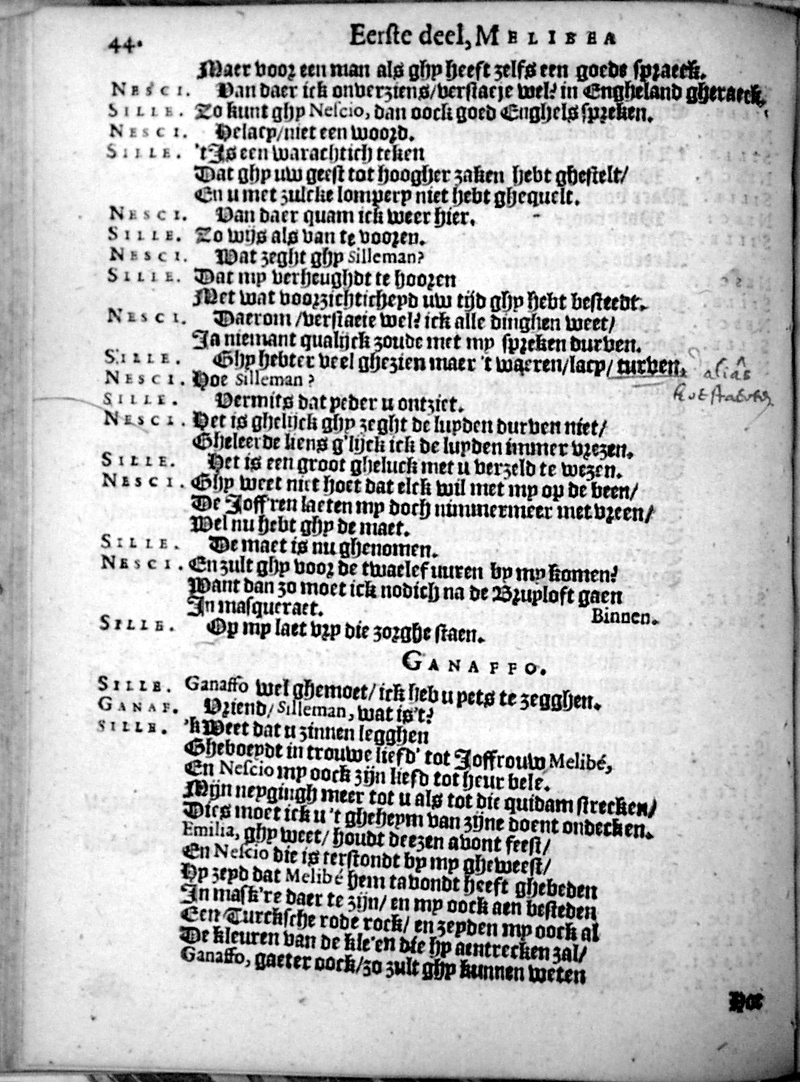 44.
Eerste deel, MELIBEA
Maer voor een man als ghy heeft zelfs een goede spraeck.
NESCI. Van daer ick onverziens/verstaeje wel? in Engheland gheraeck.
SILLE. Zo kunt ghy Nescio, dan oock goed Enghels spreken.
NESCI. Helacy/niet een woord.
SILLE. 't Is een warachtich teken
Dat ghy uw geest tot hoogher zaken hebt ghestelt/
En u met zulcke lompery niet hebt ghequelt.
NESCI. Van daer quam ick weer hier.
SILLE. Zo wijs als van te vooren.
NESCI. Wat zeght ghy Silleman?
SILLE. Dat my verheughdt te hooren
Met wat voorzichticheyd uw tijd ghy hebt besteedt.
NESCI. Daerom/verstaeie wel? ick alle dinghen weet/
Ja niemant qualijck zoude met my spreken durven.
SILLE. Ghy hebter veel ghezien maer 't waeren/lacy/turven. aliâs
NESCI. Hoe Silleman?
SILLE. Vermits dat yeder u ontziet.
NESCI. Het is ghelijck ghy zeght de luyden durven niet/
Gheleerde liens g'lijck ick de luyden immer vrezen.
SILLE. Het is een groot gheluck met u verzeld te wezen.
NESCI. Ghy weet niet hoet dat elck wil met my op de been/
De Joff'ren laeten my doch nimmermeer met vreen/
Wel nu hebt ghy de maet.
SILLE. De maet is nu ghenomen.
NESCI. En zult ghy voor de twaelef uuren by my komen?
Want dan zo moet ick nodich na de Bruyloft gaen
In masqueraet. Binnen.
SILLE. Op my laet vry die zorghe staen.
GANAFFO.
SILLE. Ganaffo wel ghemoet/ick heb u yets te zegghen.
GANAF. Vriend/Silleman, wat is't?
SILLE. 'k Weet dat u zinnen legghen
Gheboeydt in trouwe liefd' tot Joffrouw Melibé,
En Nescio my oock zijn liefd tot heur belé.
Mijn neygingh meer tot u als tot die quidam strecken/
Dies moet ick u 't gheheym van zijne doent ondecken.
Emilia, ghy weet/houdt deezen avont feest/
En Nescio die is terstondt by my gheweest/
Hy zeyd dat Melibé hem tavondt heeft ghebeden
In mask're daer te zijn/en my oock aen besteden
Een Turcksche rode rock/en zeyden my oock al
De kleuren van de kle'en die hy aentrecken zal/
Ganaffo, gaeter oock/zo zult ghy kunnen weten
Hoe